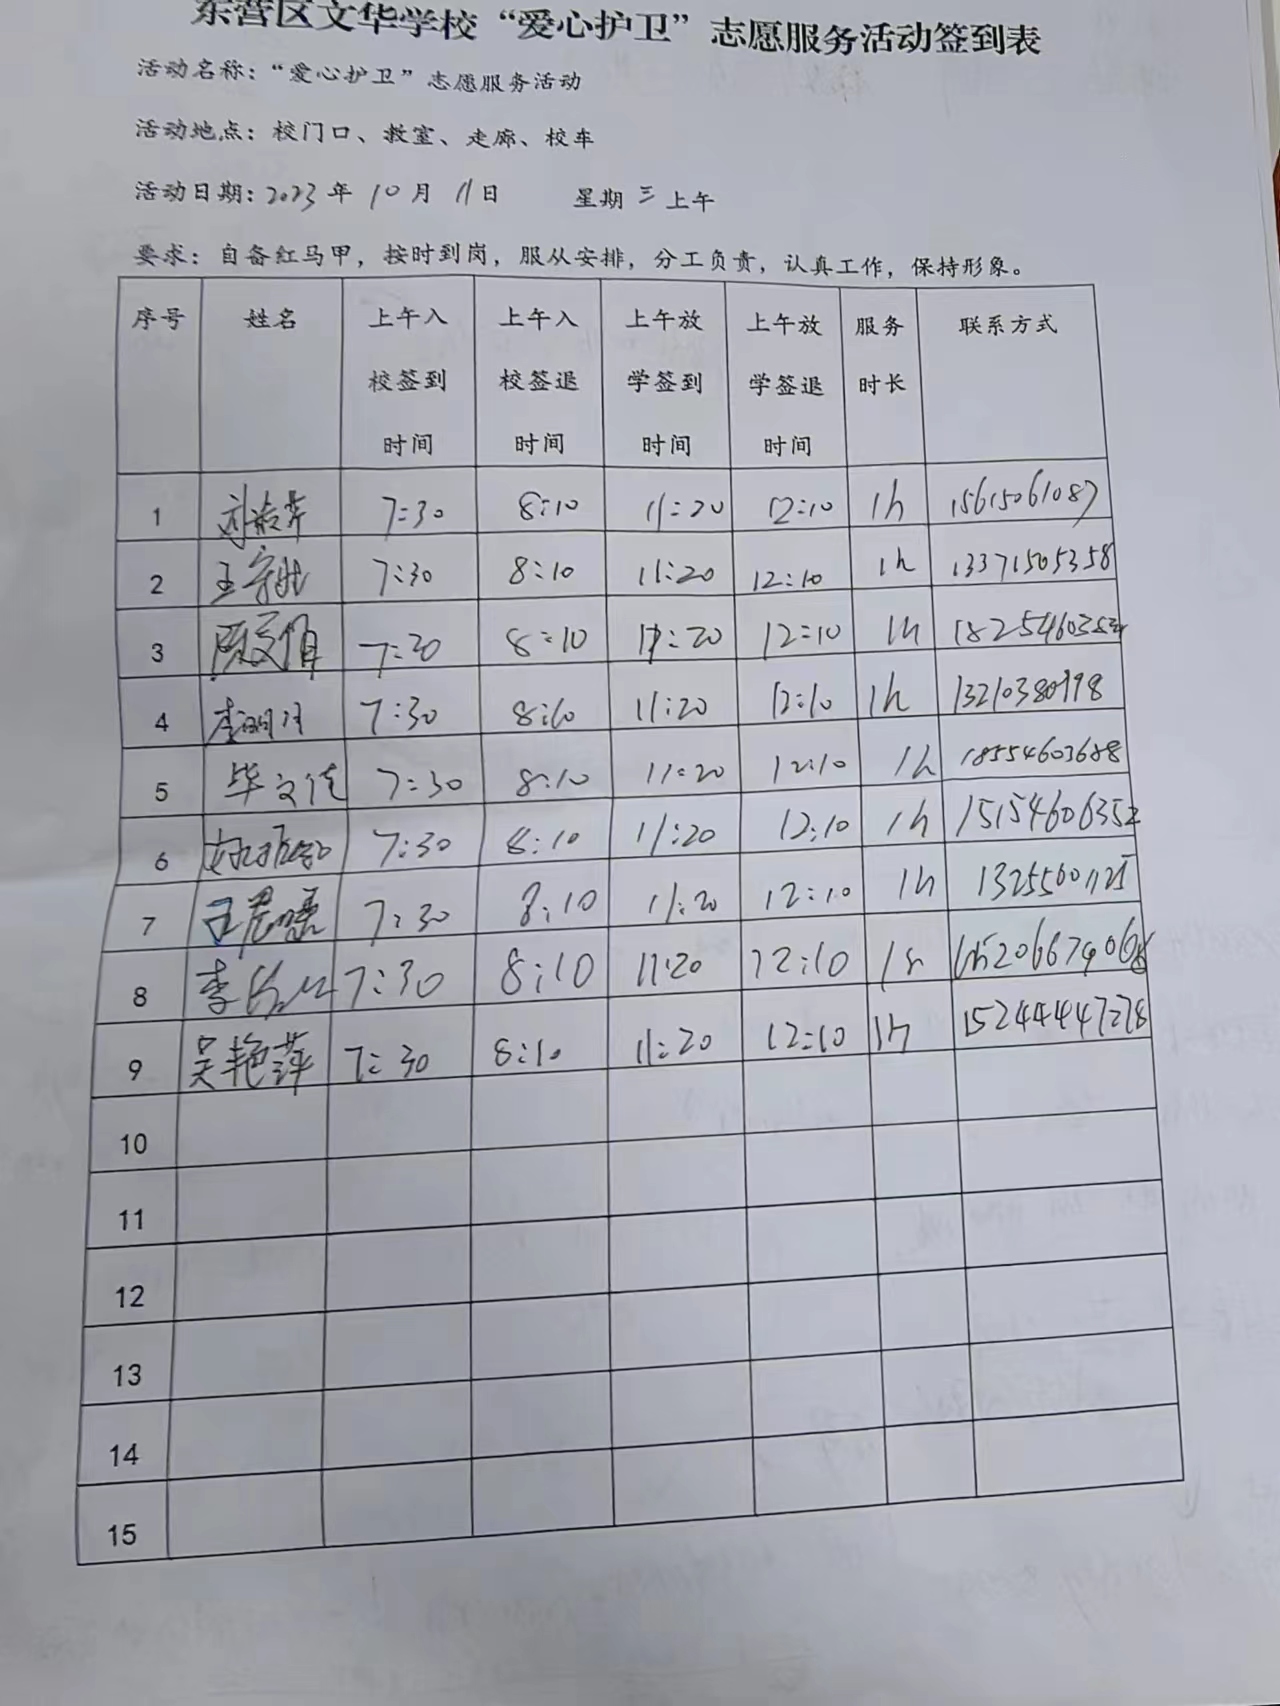 东营区文华学校“爱心护卫”志愿服务活动签到表
活动名称：“爱心护卫”志愿服务活动
活动地点：校门口、教室、走廊、校车
活动日期：2023年10月11日 星期三上午
要求：自备红马甲，按时到岗，服从安排，分工负责，认真工作，保持形象。
序号 姓名 上午入校签到时间 上午入校签退时间 上午放学签到时间 上午放学签退时间 服务时长 联系方式
1 7:30 8:10 11:20 12:10 1h 15615061087
2 7:30 8:10 11:20 12:10 1h 13371505358
3 7:30 8:10 11:20 12:10 1h
4 李明月 7:30 8:10 11:20 12:10 1h 13210380998
5 毕文佳 7:30 8:10 11:20 12:10 1h 18554603688
6 7:30 8:10 11:20 12:10 1h 15154606352
7 7:30 8:10 11:20 12:10 1h
8 7:30 8:10 11:20 12:10 1h
9 吴艳萍 7:30 8:10 11:20 12:10 1h 15244447278
10
11
12
13
14
15